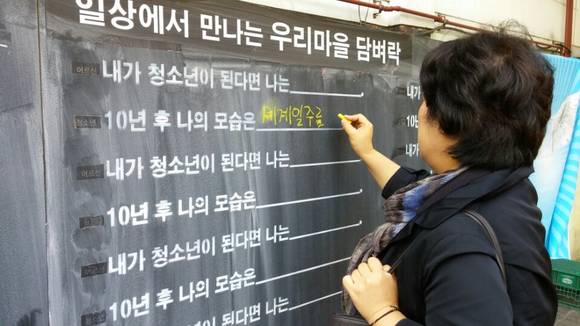 일상에서 만나는 우리마을 담벼락
어르신 내가 청소년이 된다면 나는
청소년 10년 후 나의 모습은 세계일주를
어르신 내가 청소년이 된다면 나는
10년 후 나의 모습은
내가 청소년이 된다면 나는
10년 후 나의 모습은
내가 청소년이 된다면 나는
내가
10년
내가